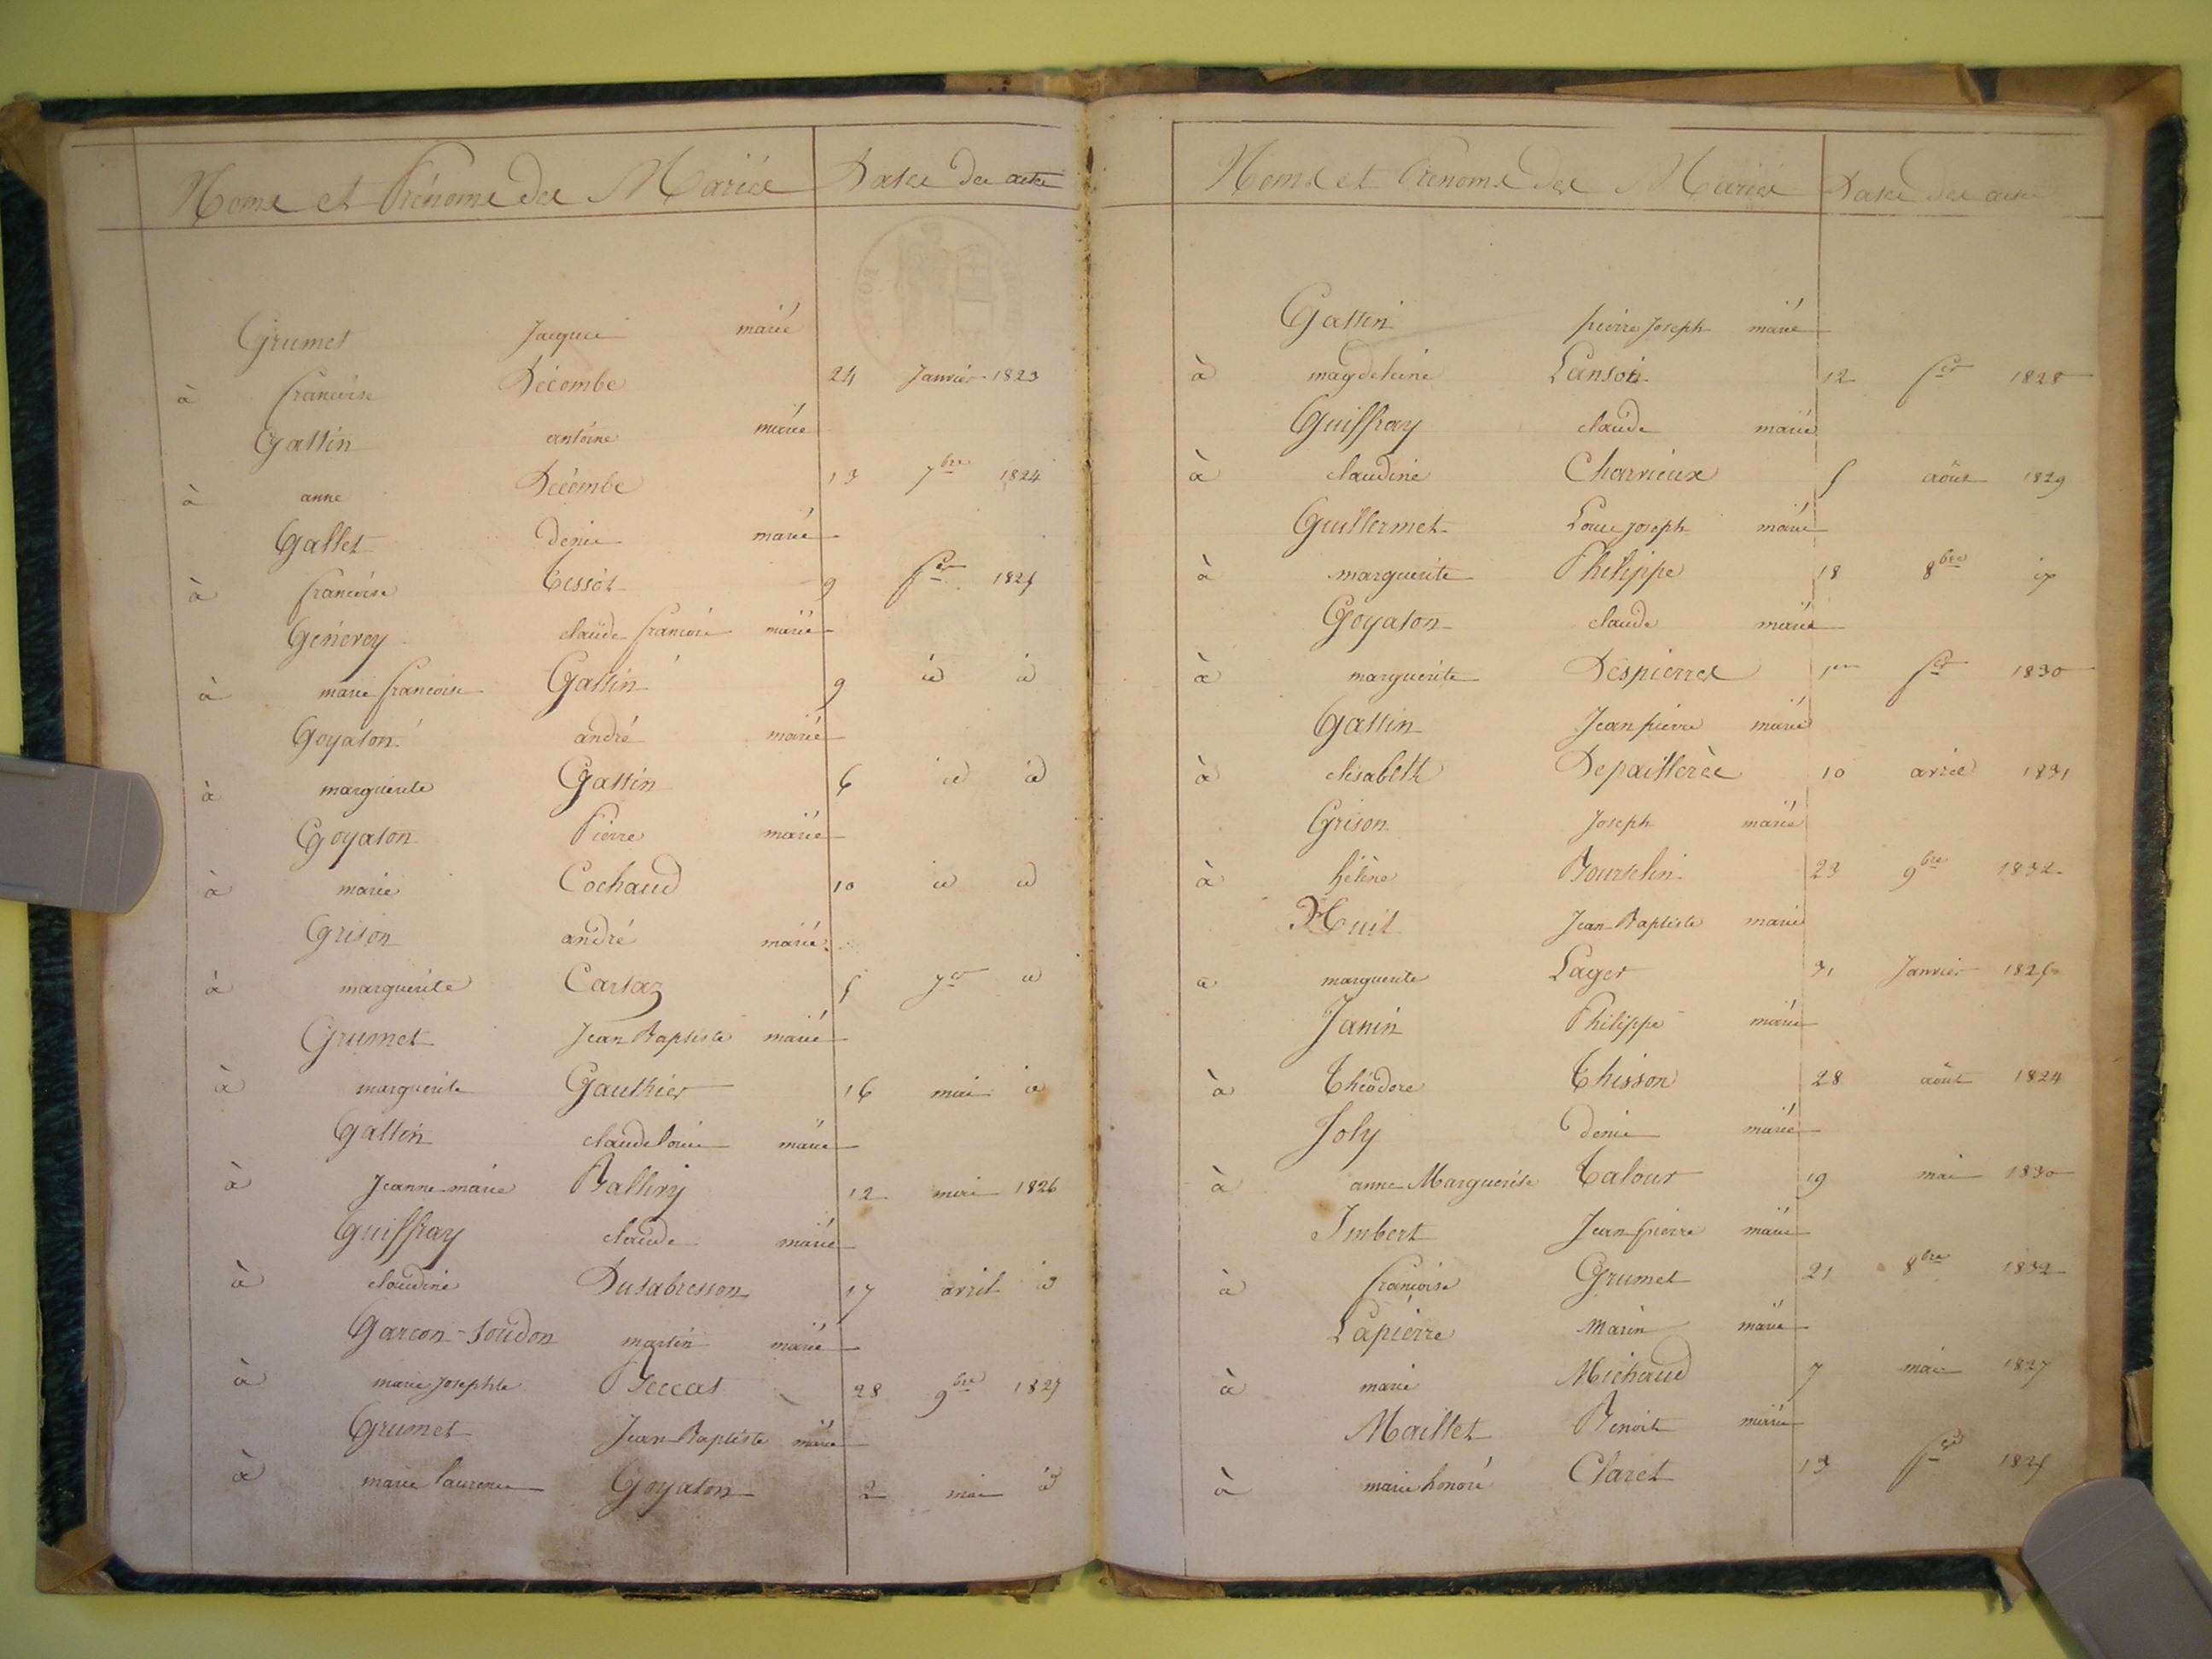 Noms et Prénoms des Mariés Dates des actes
Grumet Jacques marié
à francoise Décombe 24 Janvier 1823
Gattin antoine marié
à anne Décombe 13 7bre 1824
Gallet denis marié
à francoise Tissot 9 fer 1825
Génevoy claude francois marié
à marie francoise Gattin 9 id id
Goyaton andré marié
à marguerite Gattin 6 id id
Goyaton Pierre marié
à marie Cochaud 10 id id
Grison andré marié
à marguerite Cartaz 5 id
Grumet Jean Baptiste marié
à marguerite Gauthier 16 mai id
Gattin claude louis marié
à Jeanne marie Ballivy 12 mai 1826
Guiffray claude marié
à claudine Dusabresson 17 avril id
Garcon-Soudon martin marié
à marie Josephte Beccat 28 9bre 1827
Grumet Jean Baptiste marié
à marie laurence Goyaton 2 mai id
Noms et Prénoms des Mariés Dates des actes
Gattin pierre Joseph marié
à magdeleine Lanson 12 fer 1828
Guiffray claude marié
à claudine Charvieux 5 août 1829
Guillermet Louis Joseph marié
à marguerite Philippe 18 8bre id
Goyaton claude marié
à marguerite Despierres 1er fer 1830
Gattin Jean pierre marié
à elisabeth Depaillères 10 avril 1831
Grison Joseph marié
à hélène Bourselin 23 9bre 1832
Huit Jean Baptiste marié
à marguerite Lager 31 Janvier
Janin Philippe marié
à Théodore Thisson 28 août 1824
Joly denis marié
à anne Marguerite Talour 19 mai 1830
Imbert Jean pierre marié
à francoise Grumet 21 8bre 1832
Lapierre Marin marié
à marie Michaud 7 mai 1827
Maillet Benoit marié
à marie honoré Claret 13 fer 1825